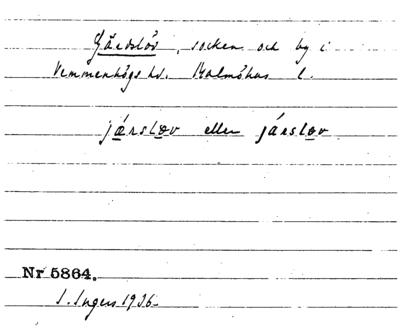 Gärdslöv, socken och by i
Vemmenhögs hd. Malmöhus l.
järsləv eller jársləv
Nr 5864.
I. Ingers 1936